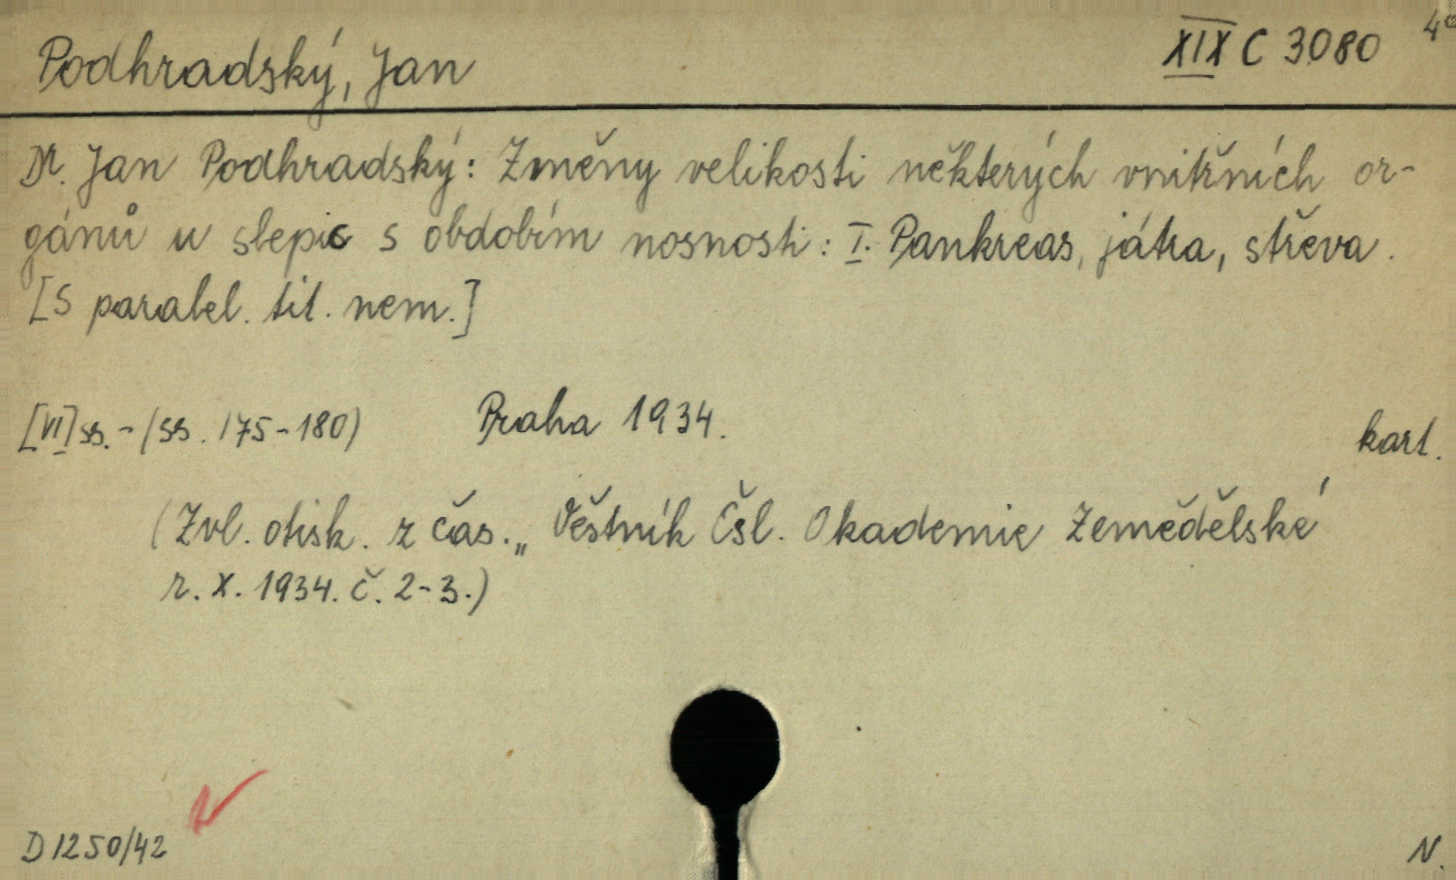 Podhradský, Jan XIX C 3080 4°
Dr. Jan Podhradský: Změny velikosti některých vnitřních or-
gánů u slepic s obdobím nosnosti: I. Pankreas, játra, střeva.
[S paralel. tit. nem.]
[VI] ss. - (ss. 175-180) Praha 1934. kart.
(Zvl. otisk. z čas. „Věstník Čsl. Akademie Zemědělské
r. X. 1934. č. 2-3.)
D 1250/42 N.